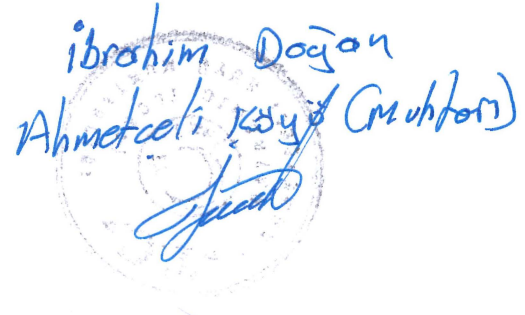 İbrahim Doğan
Ahmetceli Köyü (Muhtarı)